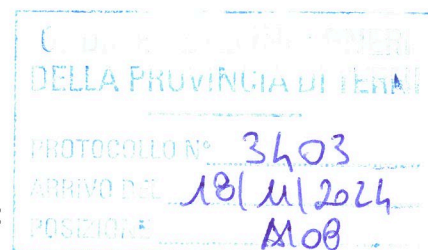 DELLA PROVINCIA DI TERNI
PROTOCOLLO N° 3403
ARRIVO DEL 18/11/2024
POSIZIONE A108